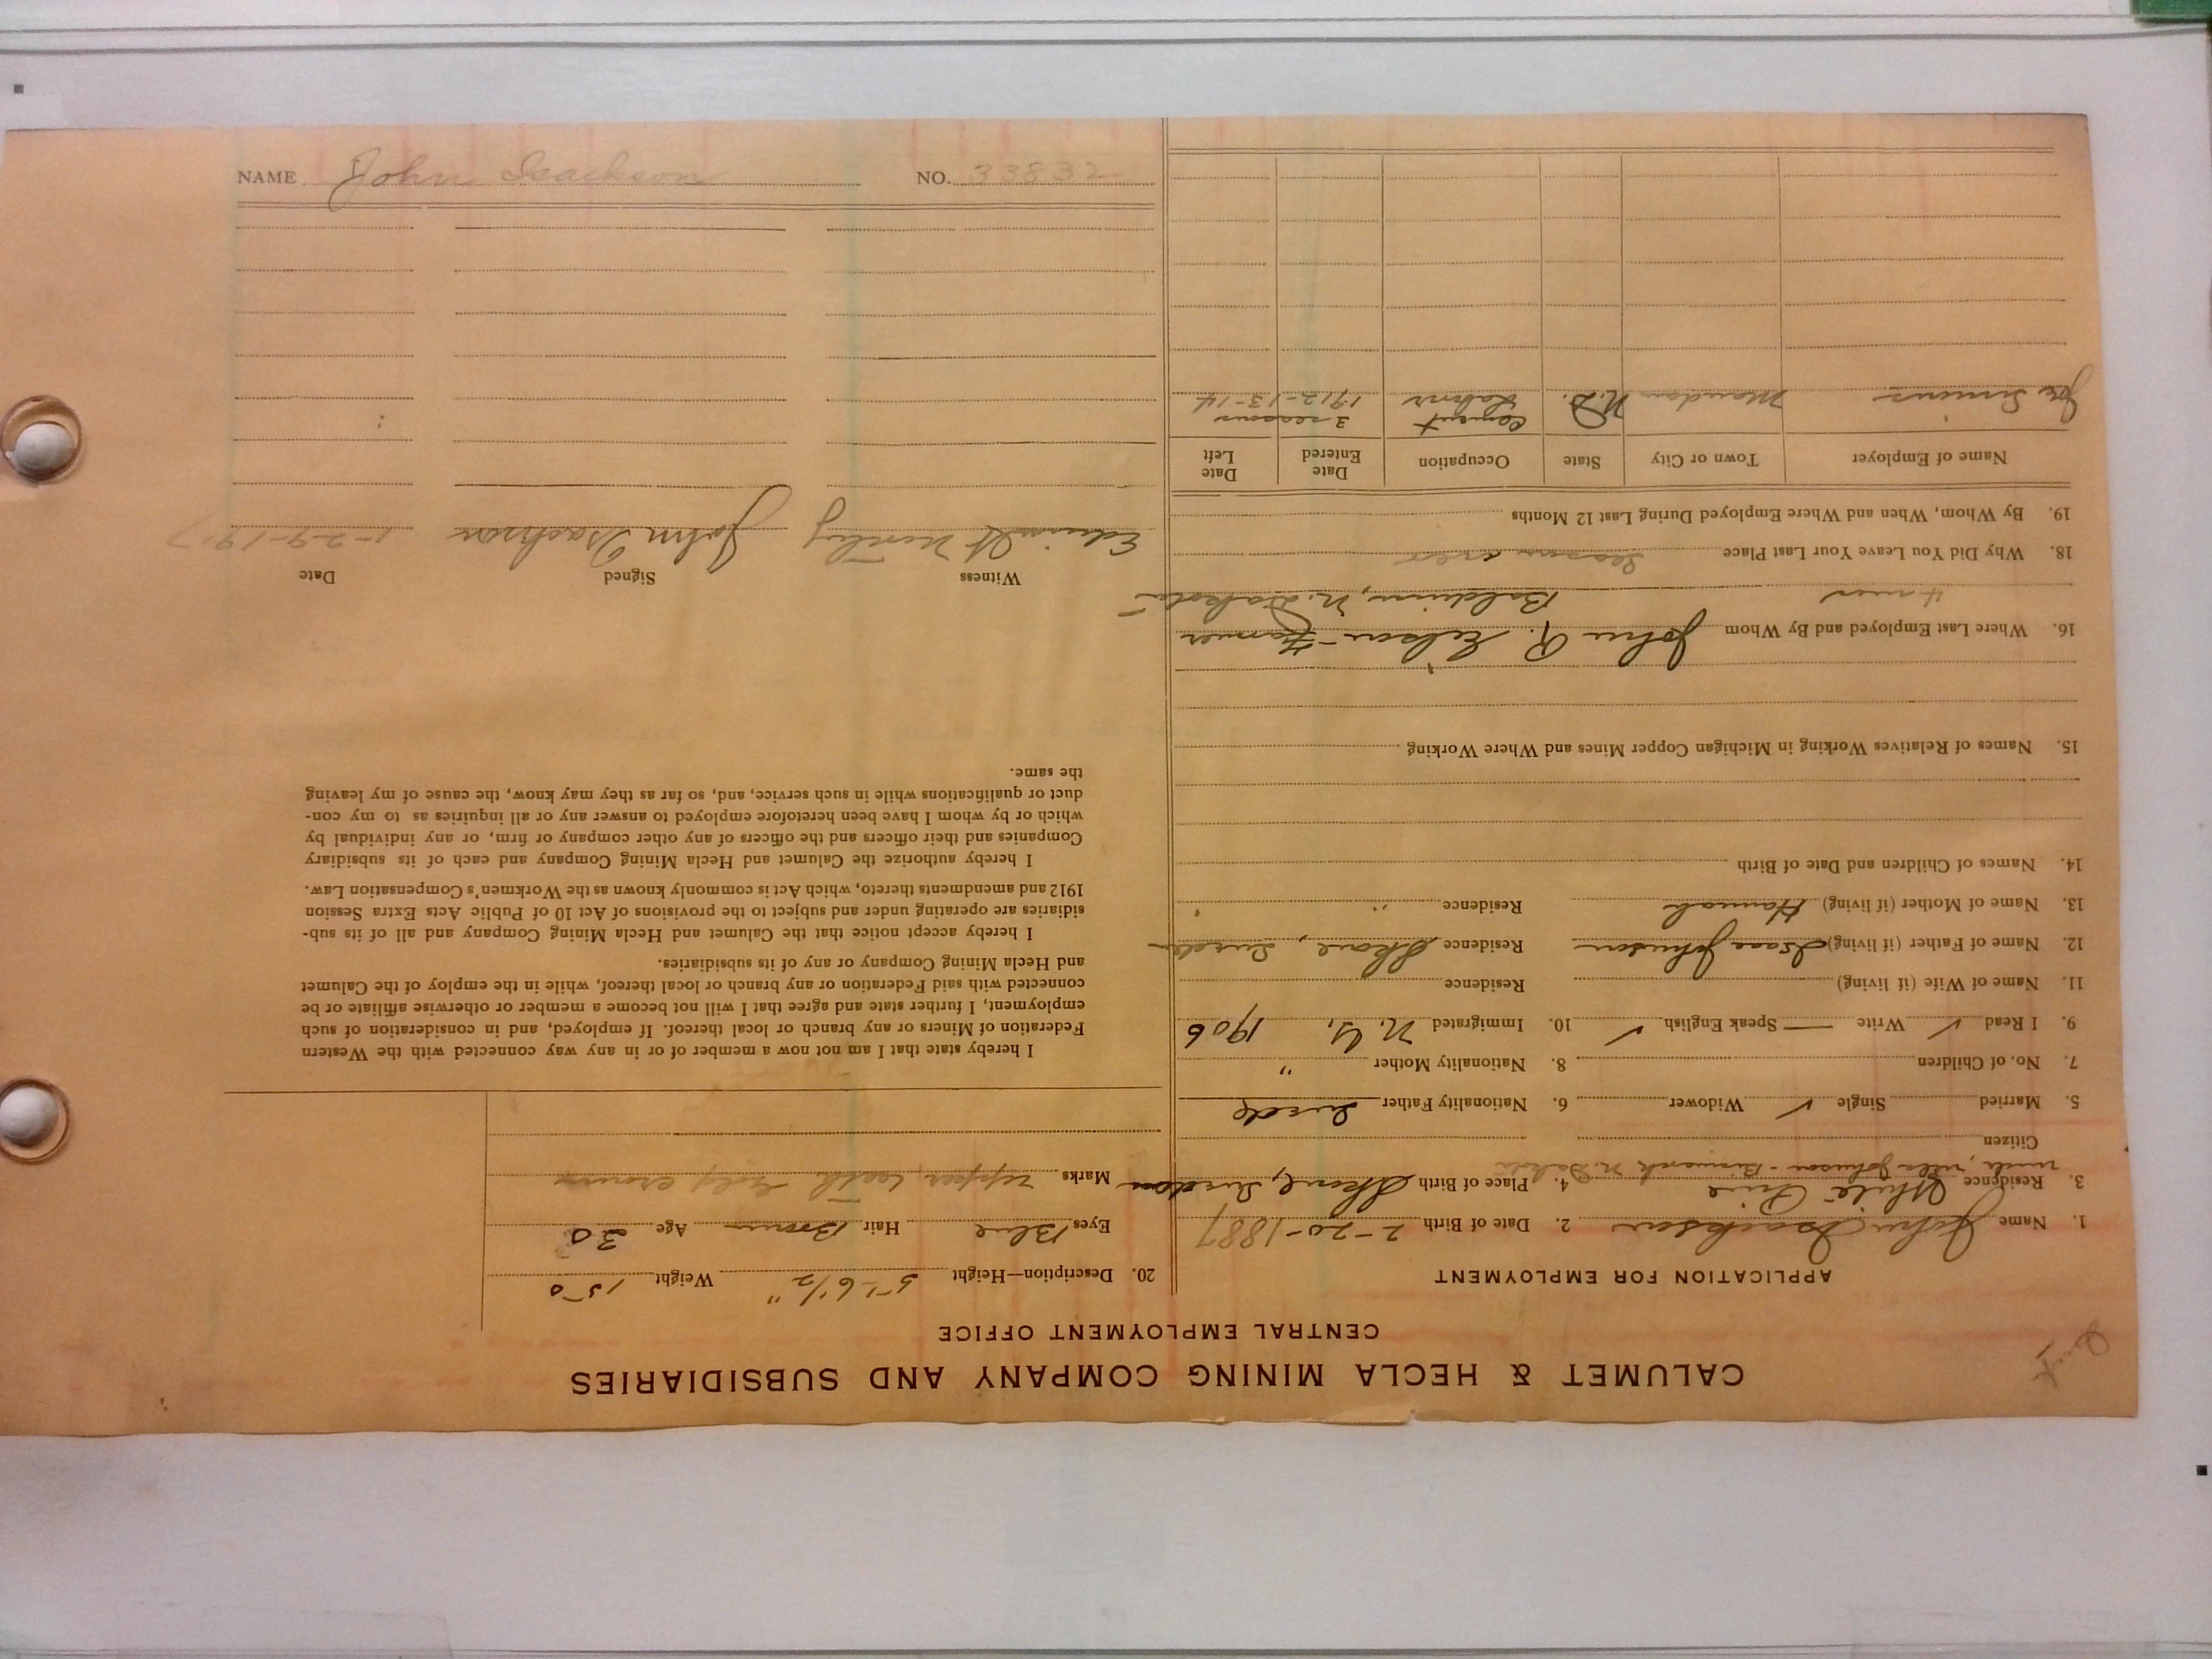 CALUMET & HECLA MINING COMPANY AND SUBSIDIARIES
CENTRAL EMPLOYMENT OFFICE
APPLICATION FOR EMPLOYMENT
1. Name John Isackson 2. Date of Birth 2-20-1887
3. Residence White Pine 4. Place of Birth Skone, Sweden
uncle, Johnson - Bismark N. Dakota
Citizen
5. Married Single ✓ Widower 6. Nationality Father Swede
7. No. of Children 8. Nationality Mother "
9. I Read ✓ Write — Speak English ✓ 10. Immigrated N.Y. 1906
11. Name of Wife (if living) Residence
12. Name of Father (if living) Isaac Johnson Residence Skone, Sweden
13. Name of Mother (if living) Hannah Residence " "
14. Names of Children and Date of Birth
15. Names of Relatives Working in Michigan Copper Mines and Where Working
16. Where Last Employed and By Whom John A. - Farmer
Baldwin, N. Dakota
18. Why Did You Leave Your Last Place Season over
19. By Whom, When and Where Employed During Last 12 Months
Name of Employer Town or City State Occupation Date Entered Date Left
Joe Simons Mandan N.D. Cement Labor 3 seasons 1912-13-14
20. Description—Height 5-6½" Weight 150
Eyes Blue Hair Brown Age 30
Marks upper teeth gold crowns
I hereby state that I am not now a member of or in any way connected with the Western
Federation of Miners or any branch or local thereof. If employed, and in consideration of such
employment, I further state and agree that I will not become a member or otherwise affiliate or be
connected with said Federation or any branch or local thereof, while in the employ of the Calumet
and Hecla Mining Company or any of its subsidiaries.
I hereby accept notice that the Calumet and Hecla Mining Company and all of its sub-
sidiaries are operating under and subject to the provisions of Act 10 of Public Acts Extra Session
1912 and amendments thereto, which Act is commonly known as the Workmen's Compensation Law.
I hereby authorize the Calumet and Hecla Mining Company and each of its subsidiary
Companies and their officers and the officers of any other company or firm, or any individual by
which or by whom I have been heretofore employed to answer any or all inquiries as to my con-
duct or qualifications while in such service, and, so far as they may know, the cause of my leaving
the same.
Witness Signed Date
John Isachson 1-29-1917
NAME John Isackson NO. 33832